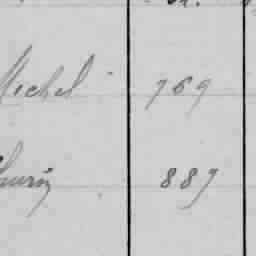 Michel 769
887